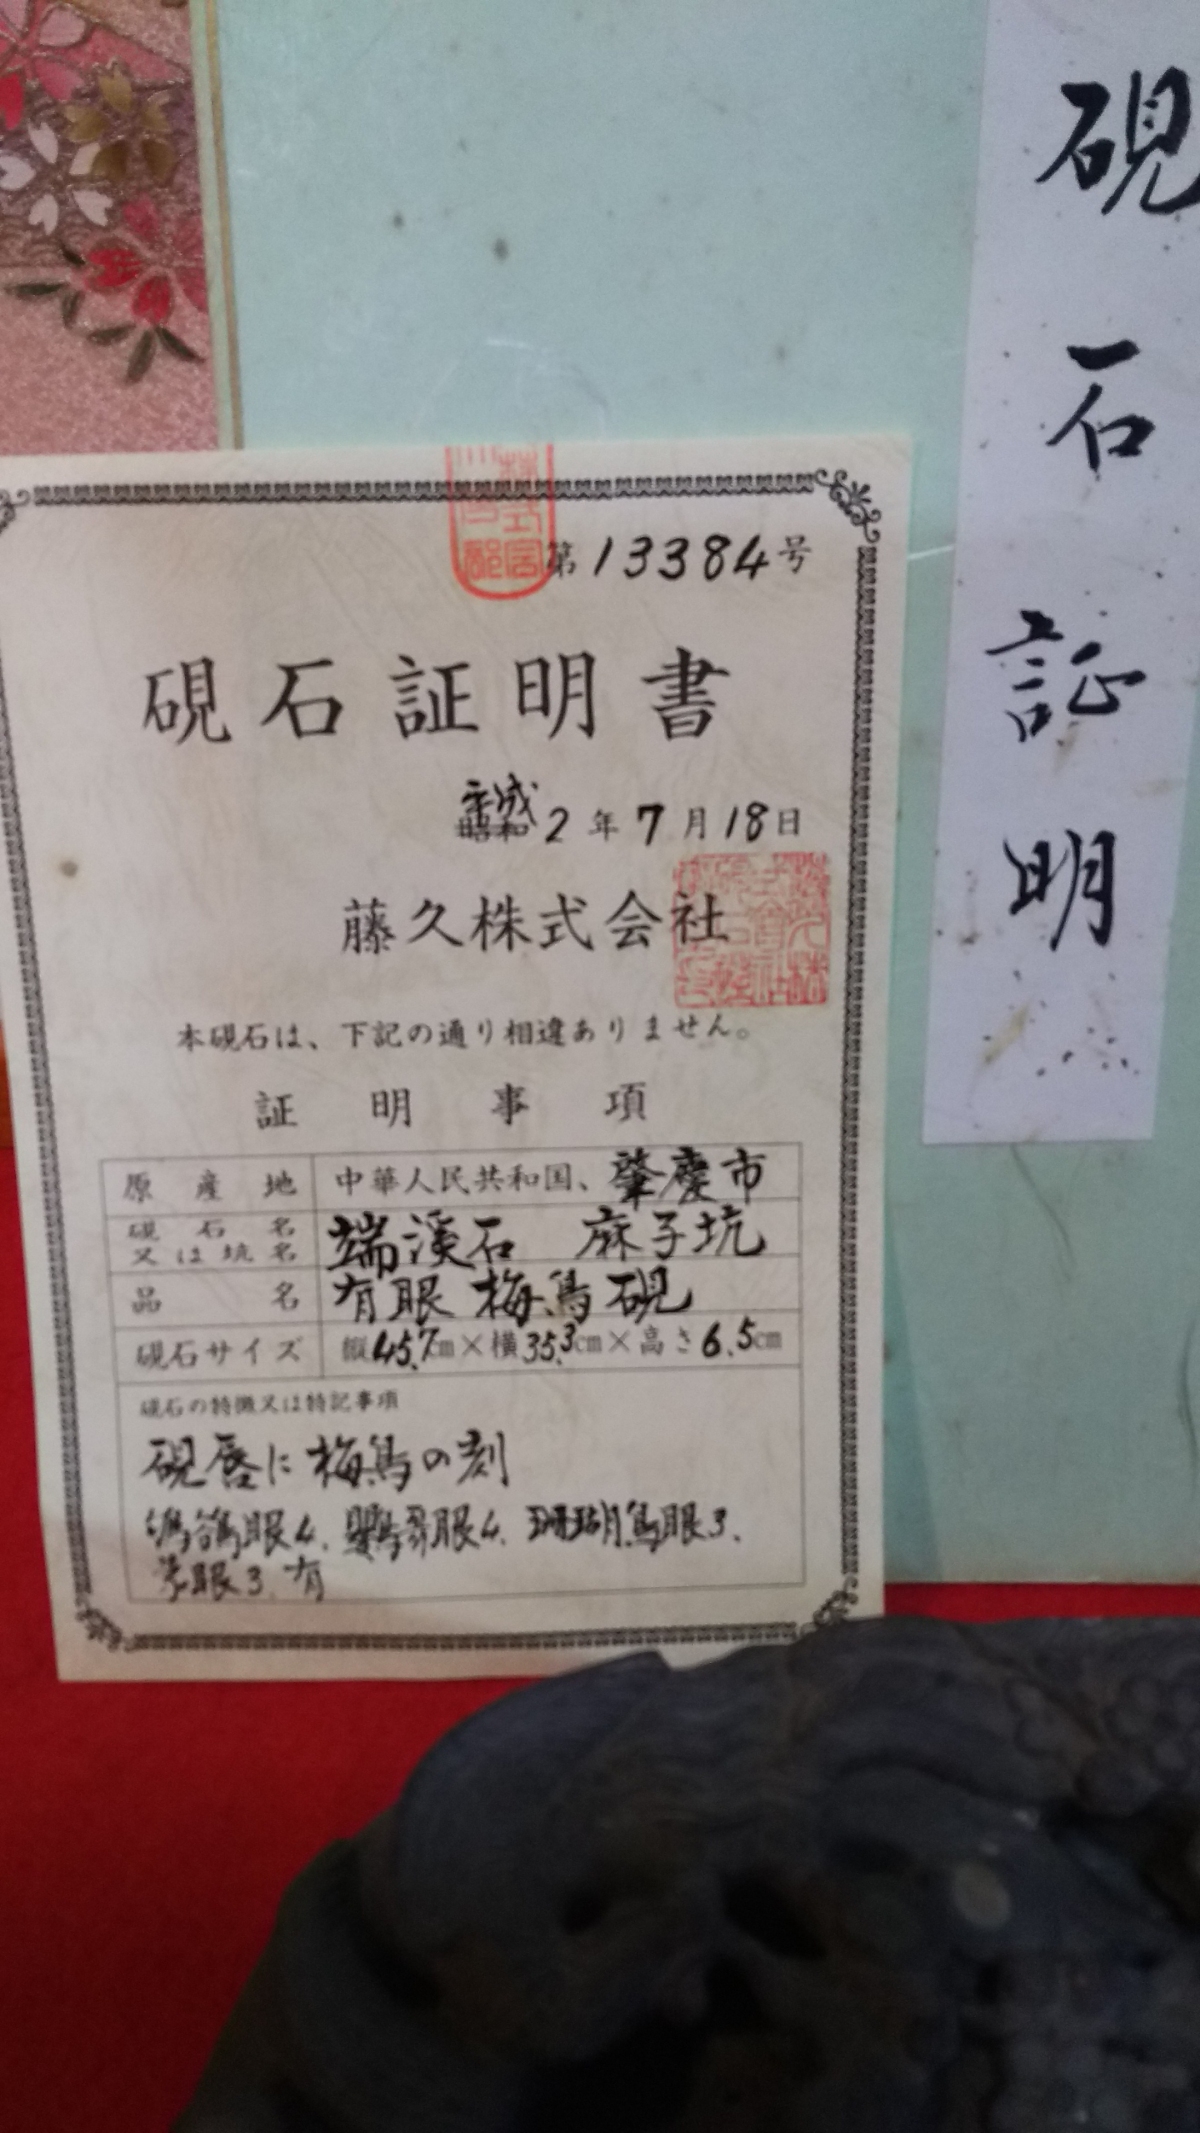 硯石証明
第13384号
硯石証明書
平成2年7月18日
藤久株式会社
本硯石は、下記の通り相違ありません。
証明事項
原産地 中華人民共和国、肇慶市
硯石名又は坑名 端溪石 麻子坑
品名 有眼 梅鳥硯
硯石サイズ 縦45.7cm×横35.3cm×高さ6.5cm
硯石の特徴又は特記事項
硯唇に梅鳥の刻
眼4. 眼4. 珊瑚鳥眼3.
眼3. 有